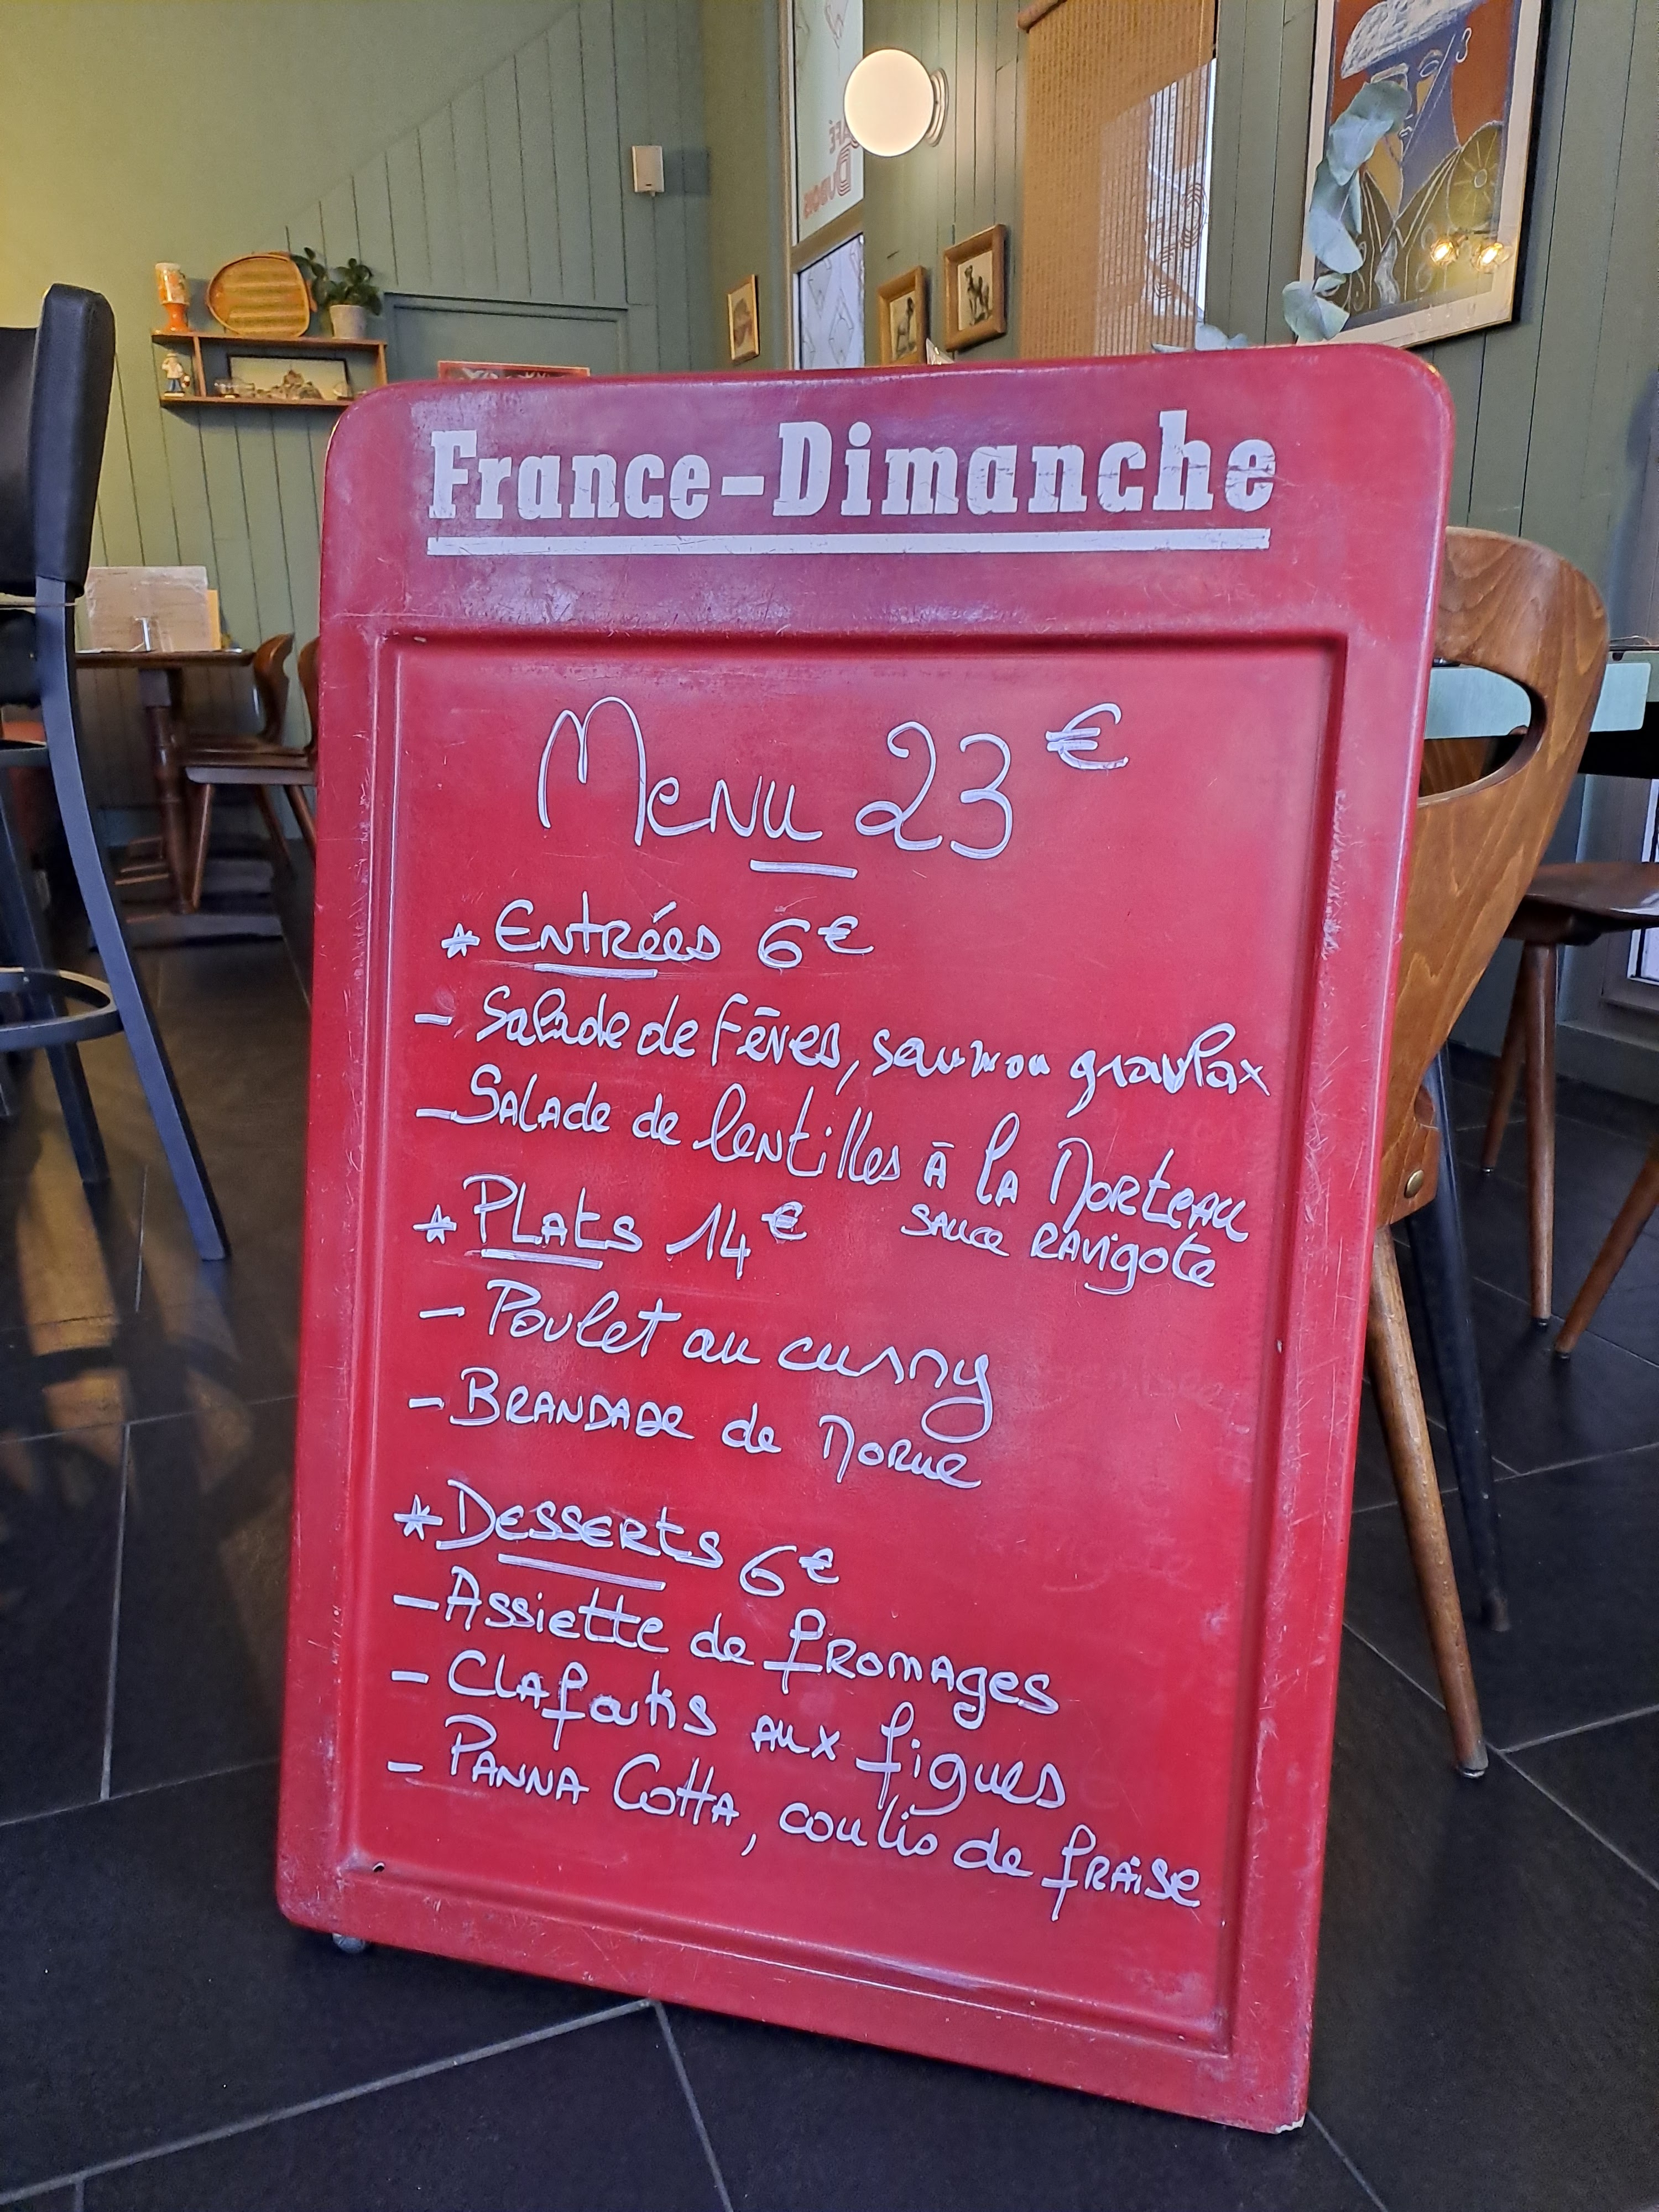 CAFÉ
DUBOIS
France-Dimanche
Menu 23€
* Entrées 6€
- Salade de fèves, saumon gravlax
- Salade de lentilles à la Morteau
sauce ravigote
* Plats 14€
- Poulet au curry
- Brandade de Morue
* Desserts 6€
- Assiette de fromages
- Clafoutis aux figues
- Panna Cotta, coulis de fraise